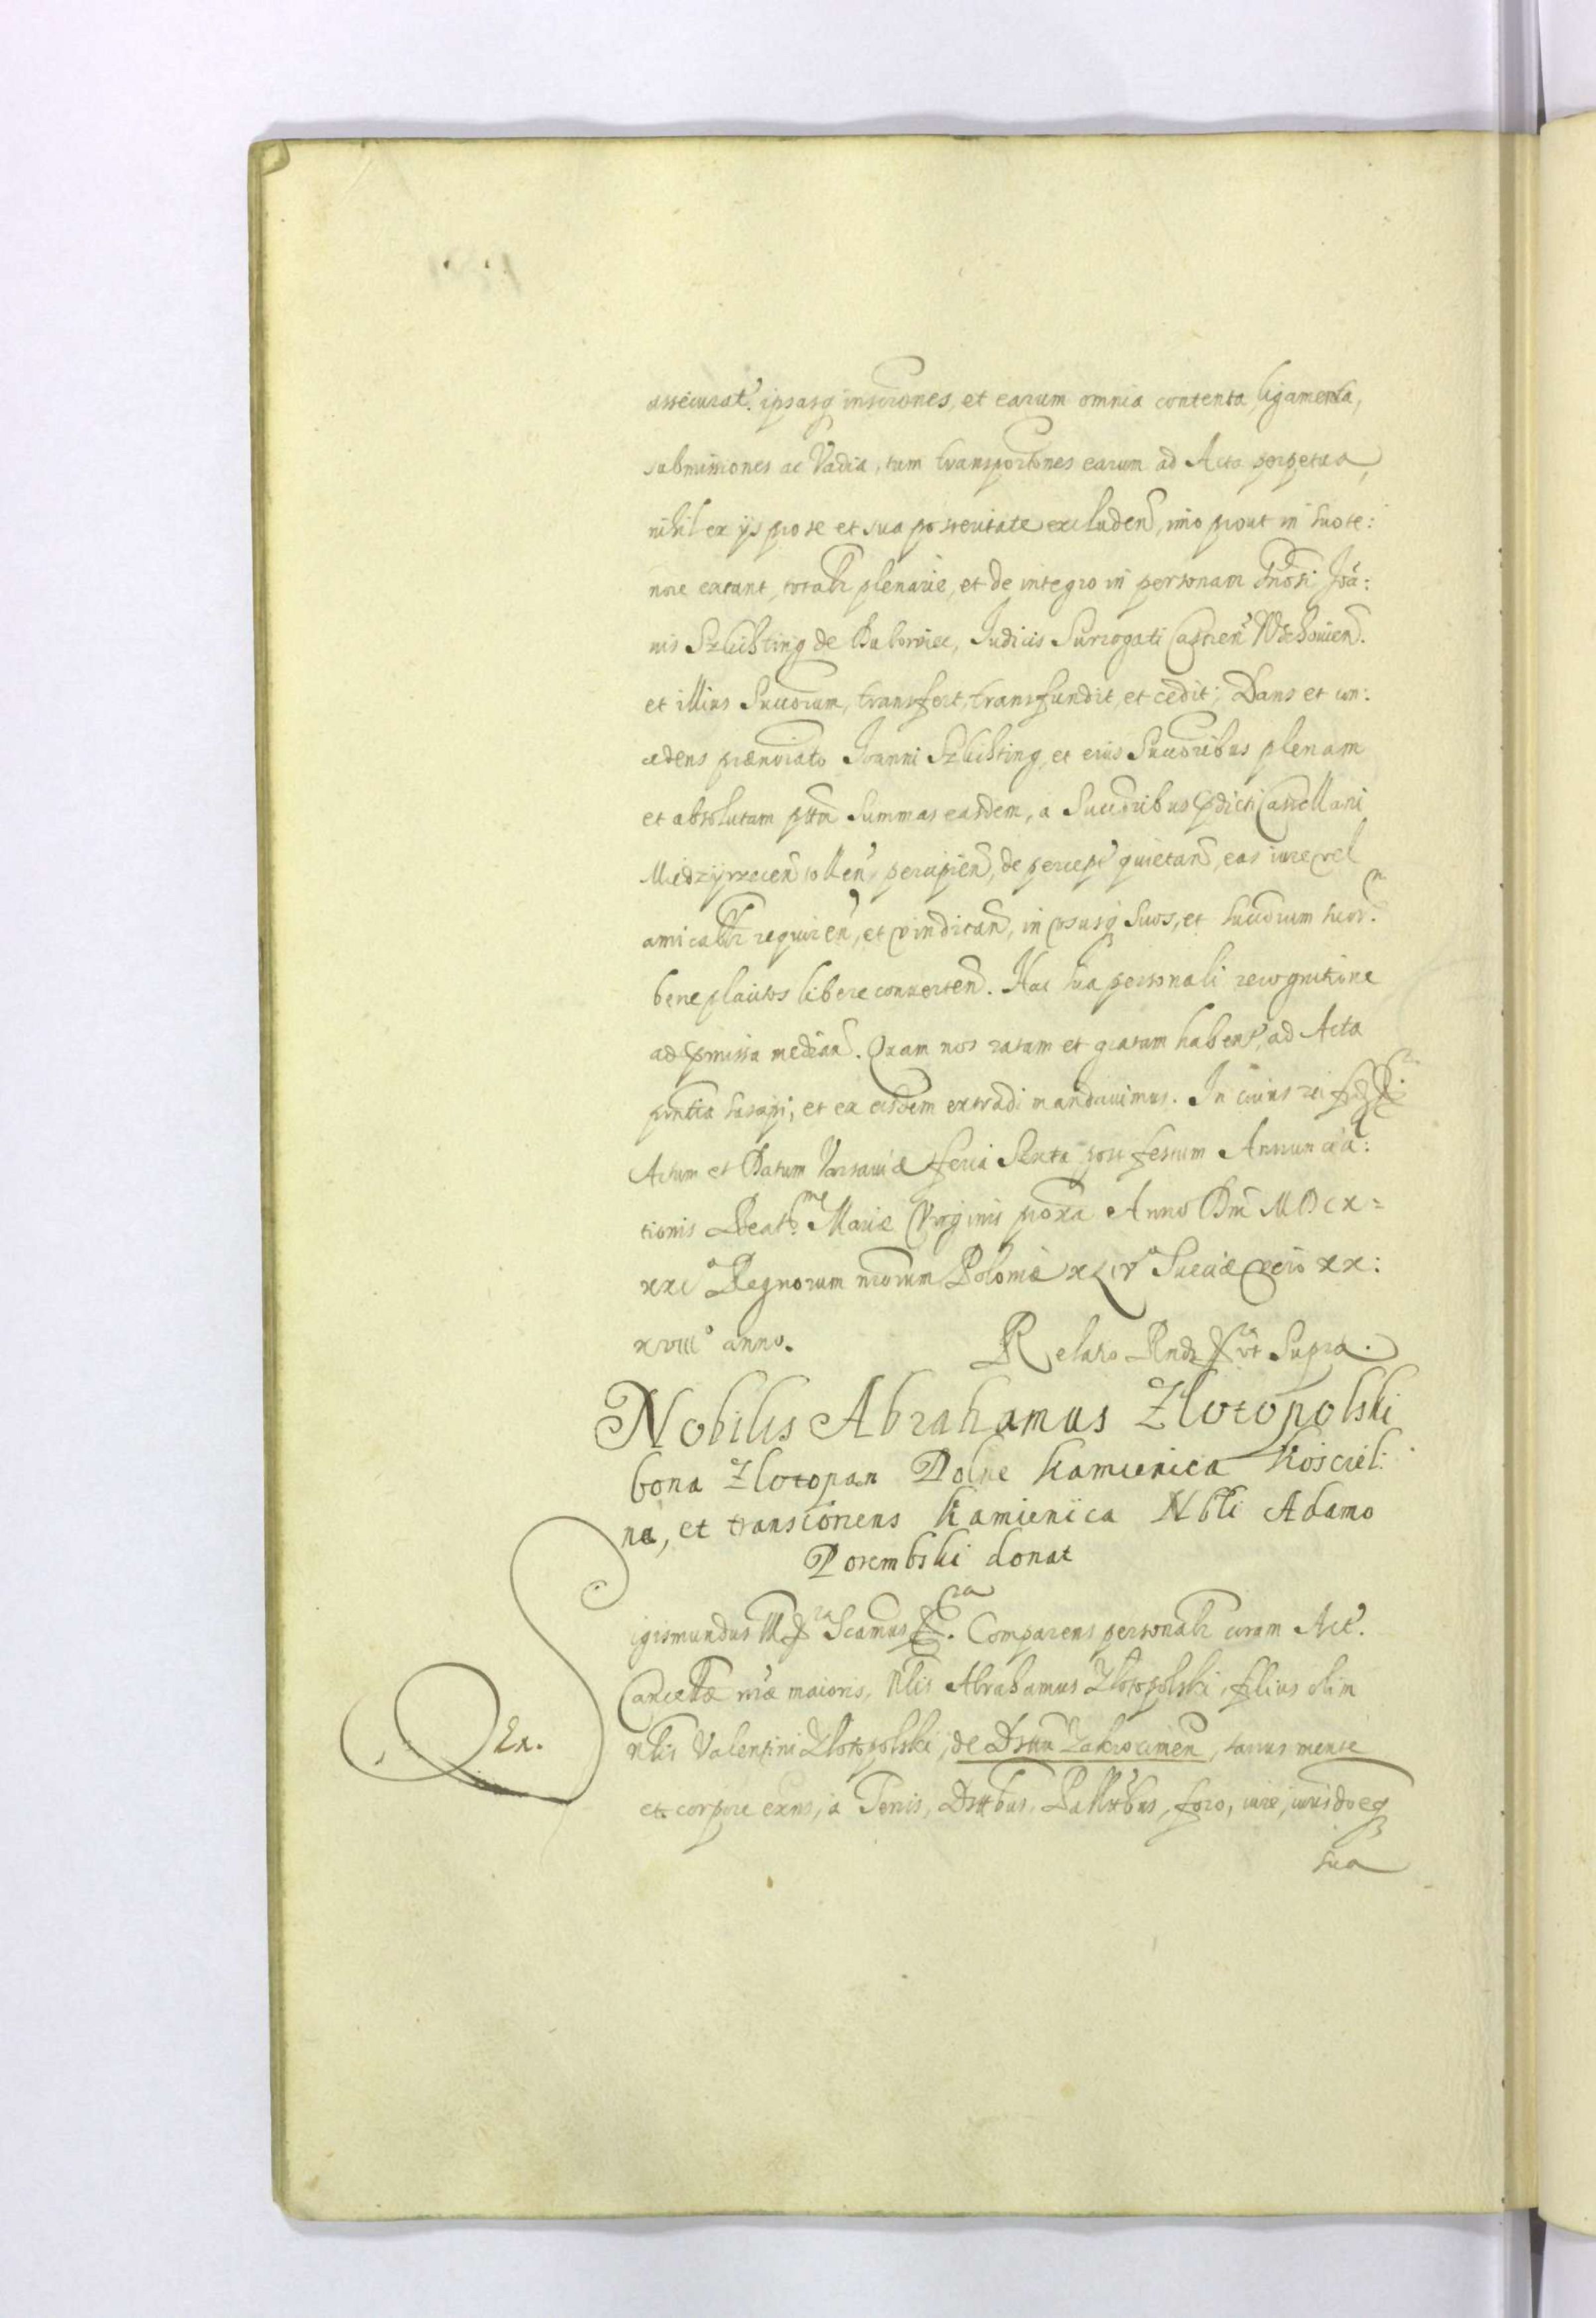 assecurat. ipsasq inscriones, et earum omnia contenta, ligamenta,
submissiones ac Vadia, tum transportiones earum ad Acta perpetua,
nihil ex ijs pro se et sua posteritate excluden, imo prout in suo te:
nore extant, totalr plenarie, et de integro in personam Gnosi Joā:
nis Szlichting de Bukowiec, Judicis Surrogati Castren Wschouien.
et illius Succorum, transfert, transfundit, et cedit; Dans et con:
cedens prænoiato Joanni Szlichting, et eius Succoribus plenam
et absolutam pttm Summas easdem, a Succoribus pdicti Castellani
Miedzyrzecen tollen, percipien, de percept quietan, eas iure vel
amicablr requiren, et vindican, in vsusq suos, et succorum suor.
beneplacitos libere conuerten. Hac sua personali recognitione
ad pmissa median. Quam nos ratam et gratam habent, ad Acta
pntia suscepi, et ex eisdem extradi mandauimus. In cuius rei fid
Actum et Datum Varsauiæ feria Sexta post festum Annuncia:
tionis Beat.mæ Mariæ Virginis proxa Anno Dni MDCX=
XXI° Regnorum nrorum Poloniæ XLIV° Sueciæ vero XX:
XVIII° anno.
Relatio Rndi ut Supra.
Nobilis Abrahamus Zlotopolski
bona Zlotopan Dolne Kamienica Kosciel:
na, et transiōnens Kamienica Nbli Adamo
Porembski donat
Sigismundus III Scamus. Comparens personalr coram Act.
Cancellæ nræ maioris, Nlis Abrahamus Zlotopolski, filius olim
Nlis Valentini Zlotopolski, de Dsttu Zakrocimen, sanus mente
Ex.
et corpore exns, a Terris, Dsttbus, Pallntbus, foro, iure, iurisdoeq
sua